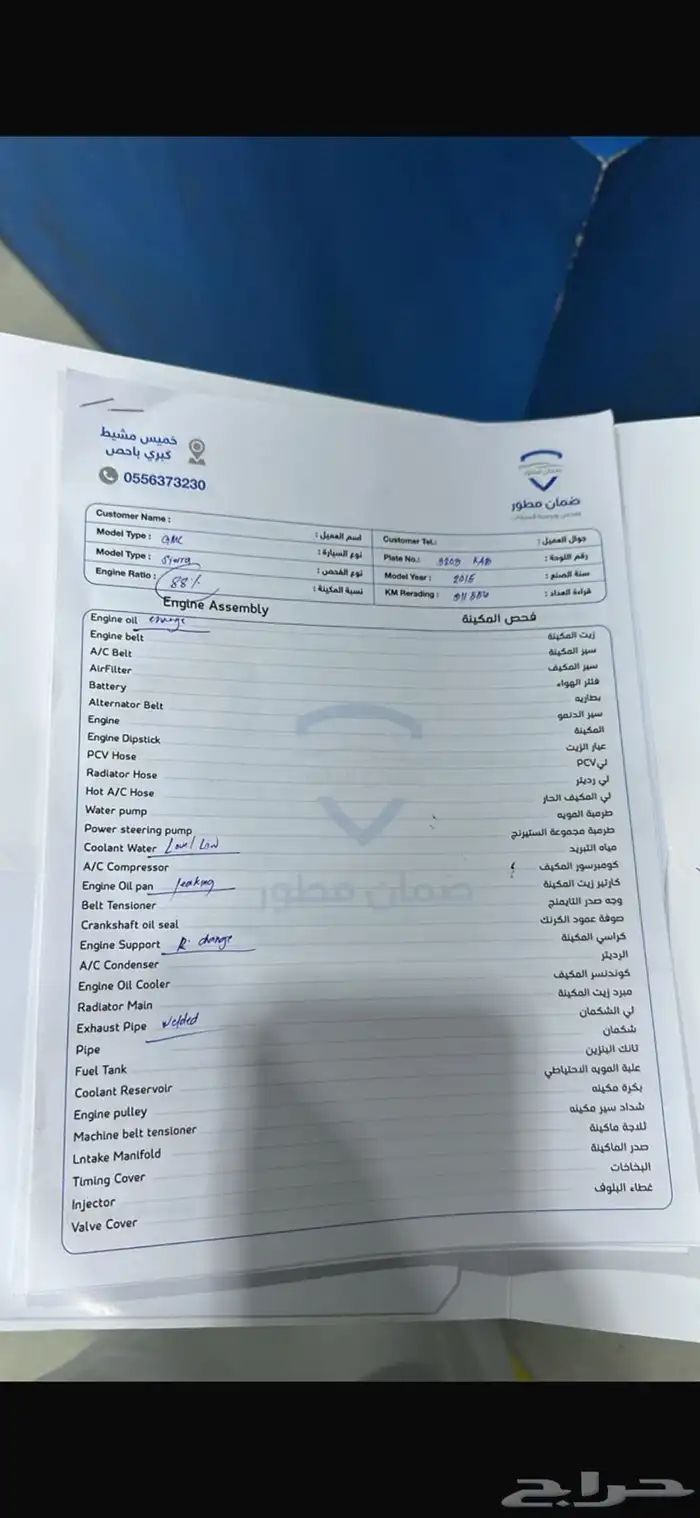 خميس مشيط
كبري باحص
0556373230
ضمان مطور
Customer Name : اسم العميل : Customer Tel.: جوال العميل :
Model Type : GMC نوع السيارة : Plate No.: رقم اللوحة :
Model Type : Sierra نوع الفحص : Model Year : 2015 سنة الصنع :
Engine Ratio : 88% نسبة المكينة : KM Rerading : قراءة العداد :
Engine Assembly فحص المكينة
Engine oil change زيت المكينة
Engine belt سير المكينة
A/C Belt سير المكيف
AirFilter فلتر الهواء
Battery بطاريه
Alternator Belt سير الدنمو
Engine المكينة
Engine Dipstick عيار الزيت
PCV Hose لي PCV
Radiator Hose لي رديتر
Hot A/C Hose لي المكيف الحار
Water pump طرمبة المويه
Power steering pump طرمبة مجموعة الستيرنج
Coolant Water Level Low مياه التبريد
A/C Compressor كومبرسور المكيف
Engine Oil pan leaking كارتير زيت المكينة
Belt Tensioner وجه صدر التايمنج
Crankshaft oil seal صوفة عمود الكرنك
Engine Support R. change كراسي المكينة
A/C Condenser الرديتر
Engine Oil Cooler كوندنسر المكيف
Radiator Main مبرد زيت المكينة
Exhaust Pipe welded لي الشكمان
Pipe شكمان
Fuel Tank تانك البنزين
Coolant Reservoir علبة المويه الاحتياطي
Engine pulley بكرة مكينه
Machine belt tensioner شداد سير مكينه
Lntake Manifold ثلاجة ماكينة
Timing Cover صدر الماكينة
Injector البخاخات
Valve Cover غطاء البلوف
ضمان مطور
حراج